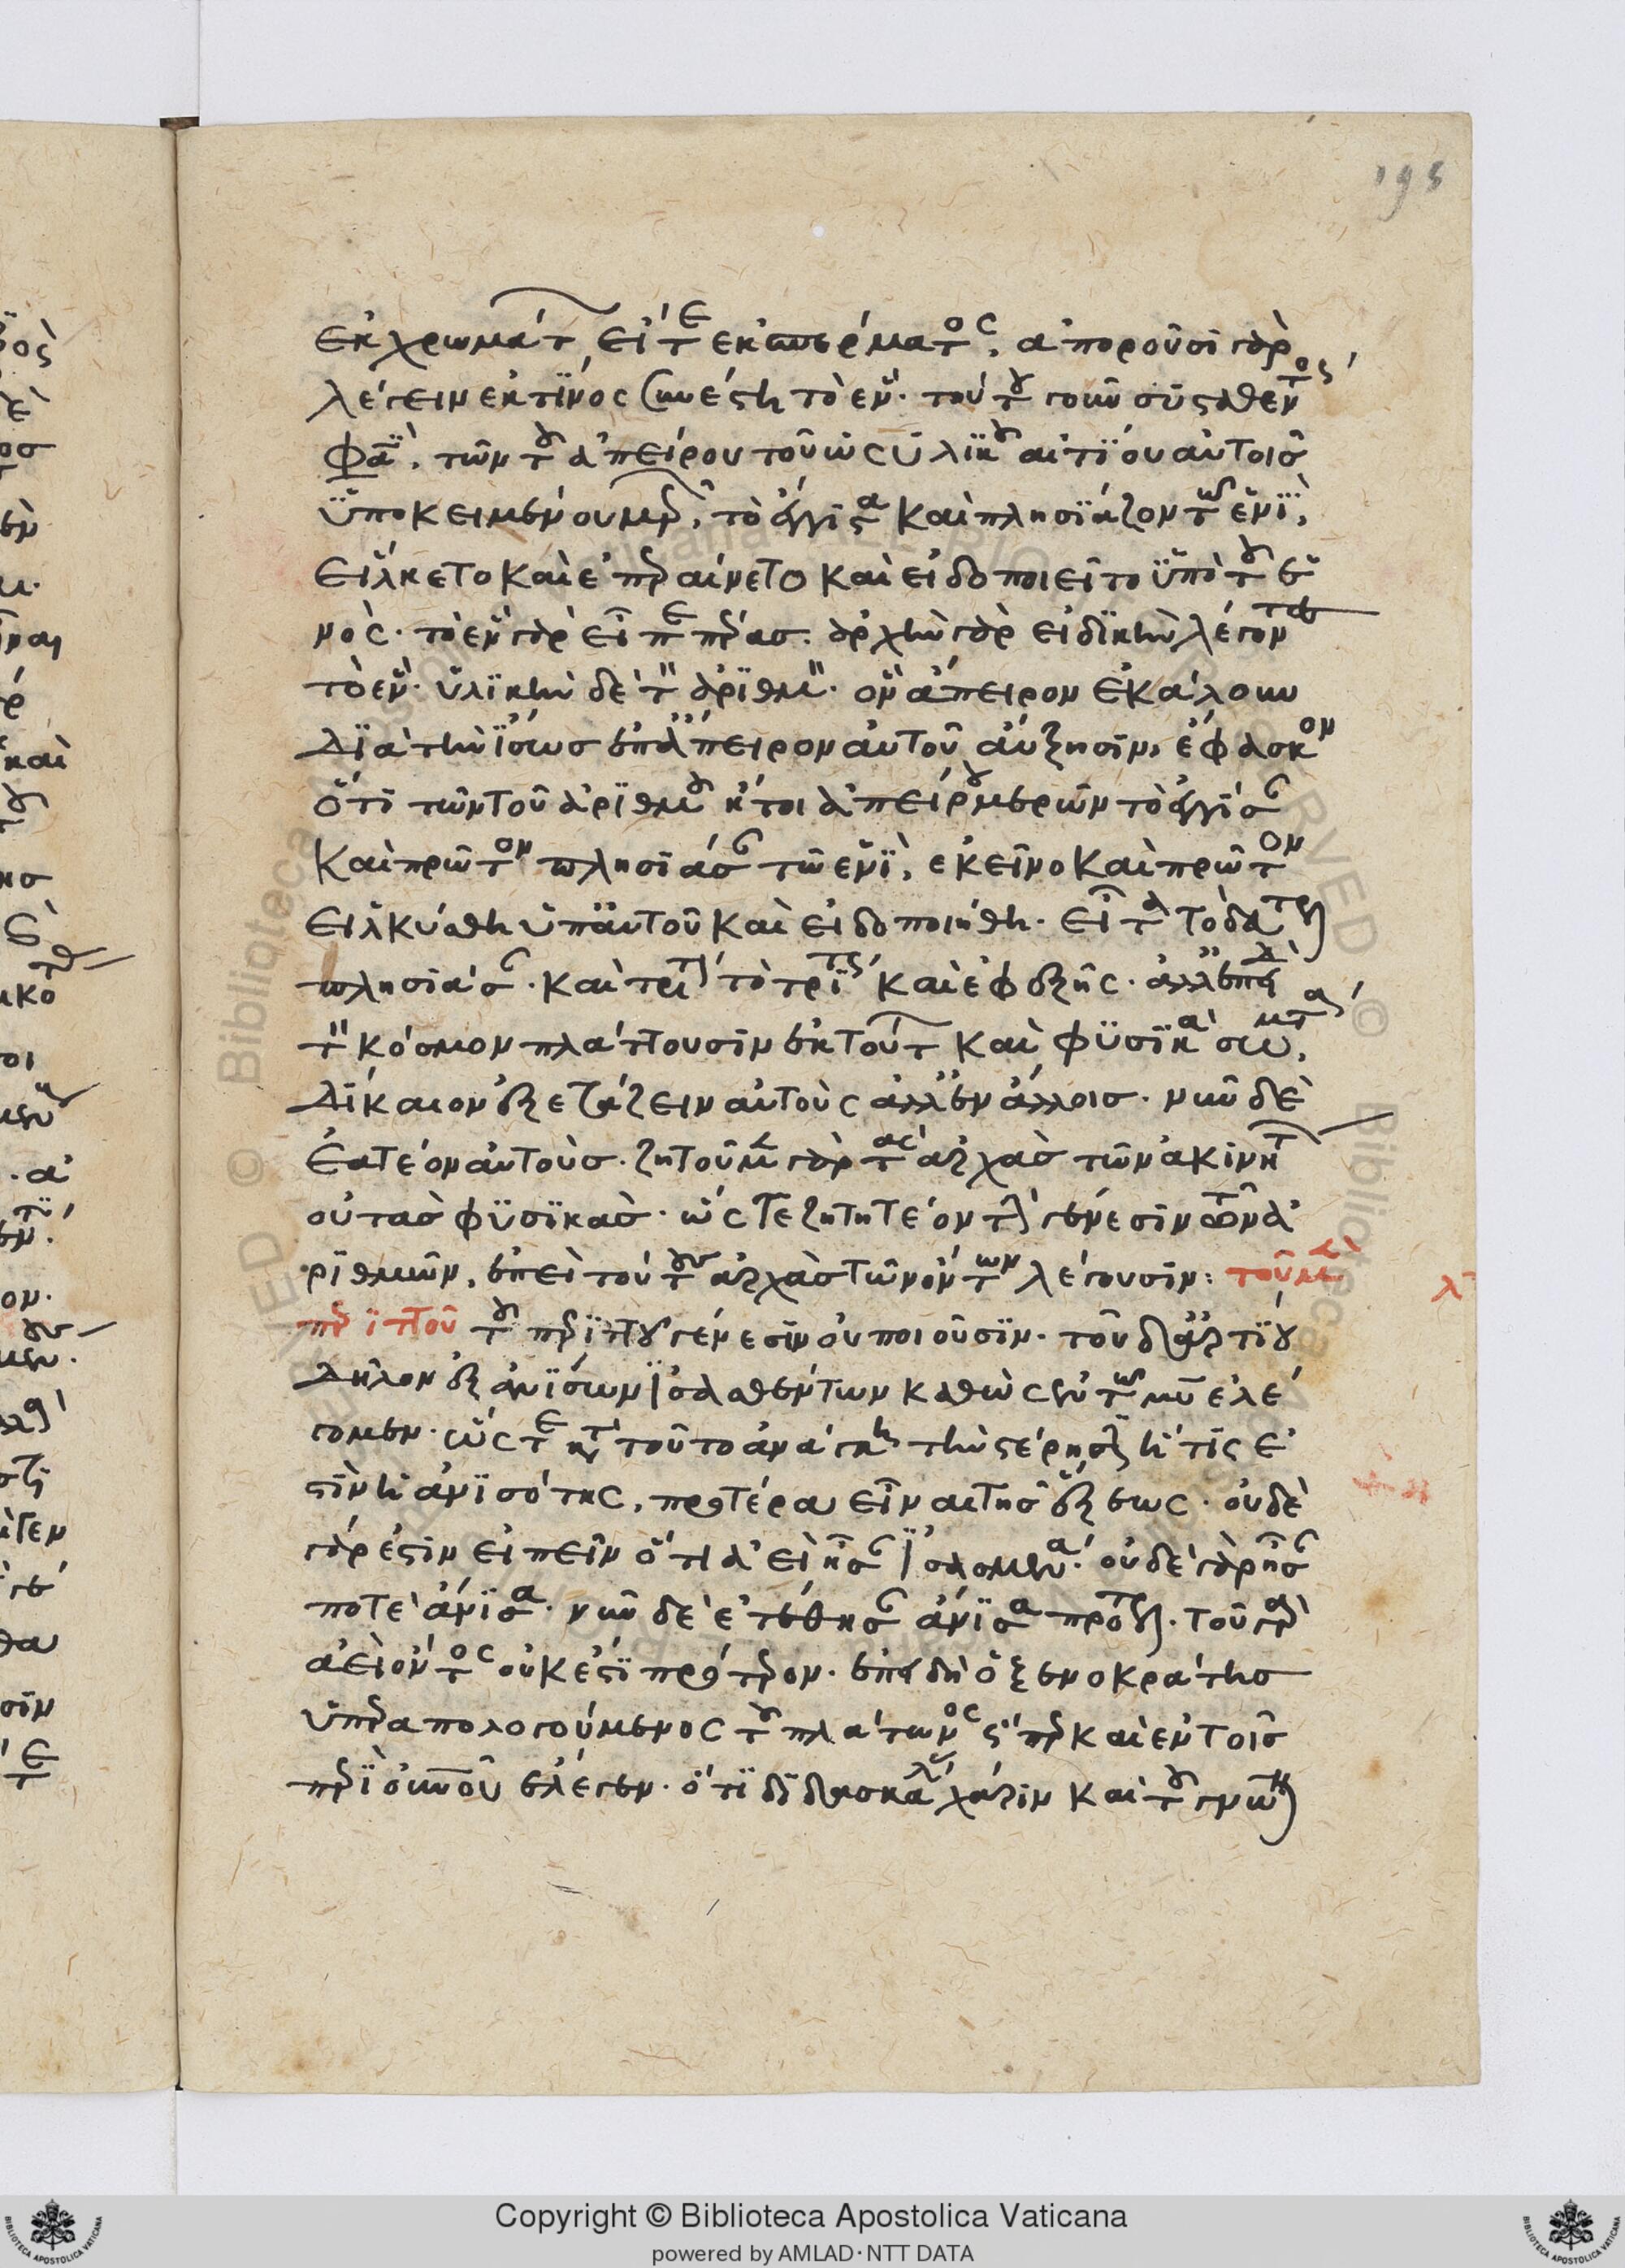 193
ἐκ χρωμάτων, εἴτε ἐκ σπέρματος, ἀποροῦσι γὰρ
λέγειν ἐκ τίνος συνέστη τὸ ἕν. τούτου γοῦν συσταθέντος
φασὶ, τῶν τοῦ ἀπείρου τοῦ ὡς ὑλικοῦ αἰτίου αὐτοῖς
ὑποκειμένου μερῶν, τὸ ἔγγιστα καὶ πλησιάζον τῷ ἑνὶ,
εἵλκετο καὶ ἐπεραίνετο καὶ εἰδοποιεῖτο ὑπὸ τοῦ ἑ
νός. τὸ ἓν γὰρ εἶπε πέρας. ἀρχὴν γὰρ εἰδικὴν λέγοντες
τὸ ἕν. ὑλικὴν δὲ τὸν ἀριθμὸν. ὃν ἄπειρον ἐκάλουν
διὰ τὴν ἴσως ἐπ' ἄπειρον αὐτοῦ αὔξησιν, ἔφασκον
ὅτι τῶν τοῦ ἀριθμοῦ ἤτοι ἀπείρου μερῶν τὸ ἔγγισ
καὶ πρῶτον πλησιάσαν τῷ ἑνὶ, ἐκεῖνο καὶ πρῶτον
εἱλκύσθη ὑπ' αὐτοῦ καὶ εἰδοποιήθη. εἶτα τὸ δεύτερον
πλησιάσαν. καὶ τρίτον τὸ τρίτον καὶ ἐφεξῆς. ἀλλ' ἐπειδὴ
τὸν κόσμον πλάττουσιν ἐκ τούτων καὶ φυσικὰ σώματα,
δίκαιον ἐξετάζειν αὐτοὺς ἀλλ' ἐν ἄλλοις. νῦν δὲ
ἐατέον αὐτούς. ζητοῦμεν γὰρ τὰς ἀρχὰς τῶν ἀκινήτων
οὐ τὰς φυσικάς. ὥστε ζητητέον τὴν γένεσιν τῶν ἀ
ριθμῶν, ἐπεὶ τούτους ἀρχὰς τῶν ὄντων λέγουσιν: τοῦ μὲν
περιττοῦ τοῦ περιττοῦ γένεσιν οὐ ποιοῦσιν. τοῦ δ' ἀρτίου
δῆλον ἐξ ἀνίσων ἰσασθέντων καθὼς ἐν τῷ μῦ ἐλέ
γομεν. ὥστε κατὰ τοῦτο ἀνάγκη τὴν στέρησιν ἥτις ἐ
στὶν ἡ ἀνισότης, προτέραν εἶναι τῆς ἕξεως. οὐδὲ
γὰρ ἔστιν εἰπεῖν ὅτι ἀεὶ ἦσαν ἰσασμένα. οὐδὲ γὰρ ἦσαν
ποτὲ ἄνισα. νῦν δὲ ἐτέθησαν ἄνισα πρότερον. τοῦ γὰρ
ἀεὶ ὄντος οὐκ ἔστι πρότερον. ἐπειδὴ ὁ ξενοκράτης
ὑπεραπολογούμενος τοῦ πλάτωνος ὥσπερ καὶ ἐν τοῖς
περὶ οὐρανοῦ ἔλεγεν. ὅτι διδασκαλίας χάριν καὶ τοῦ γνῶναι
λ